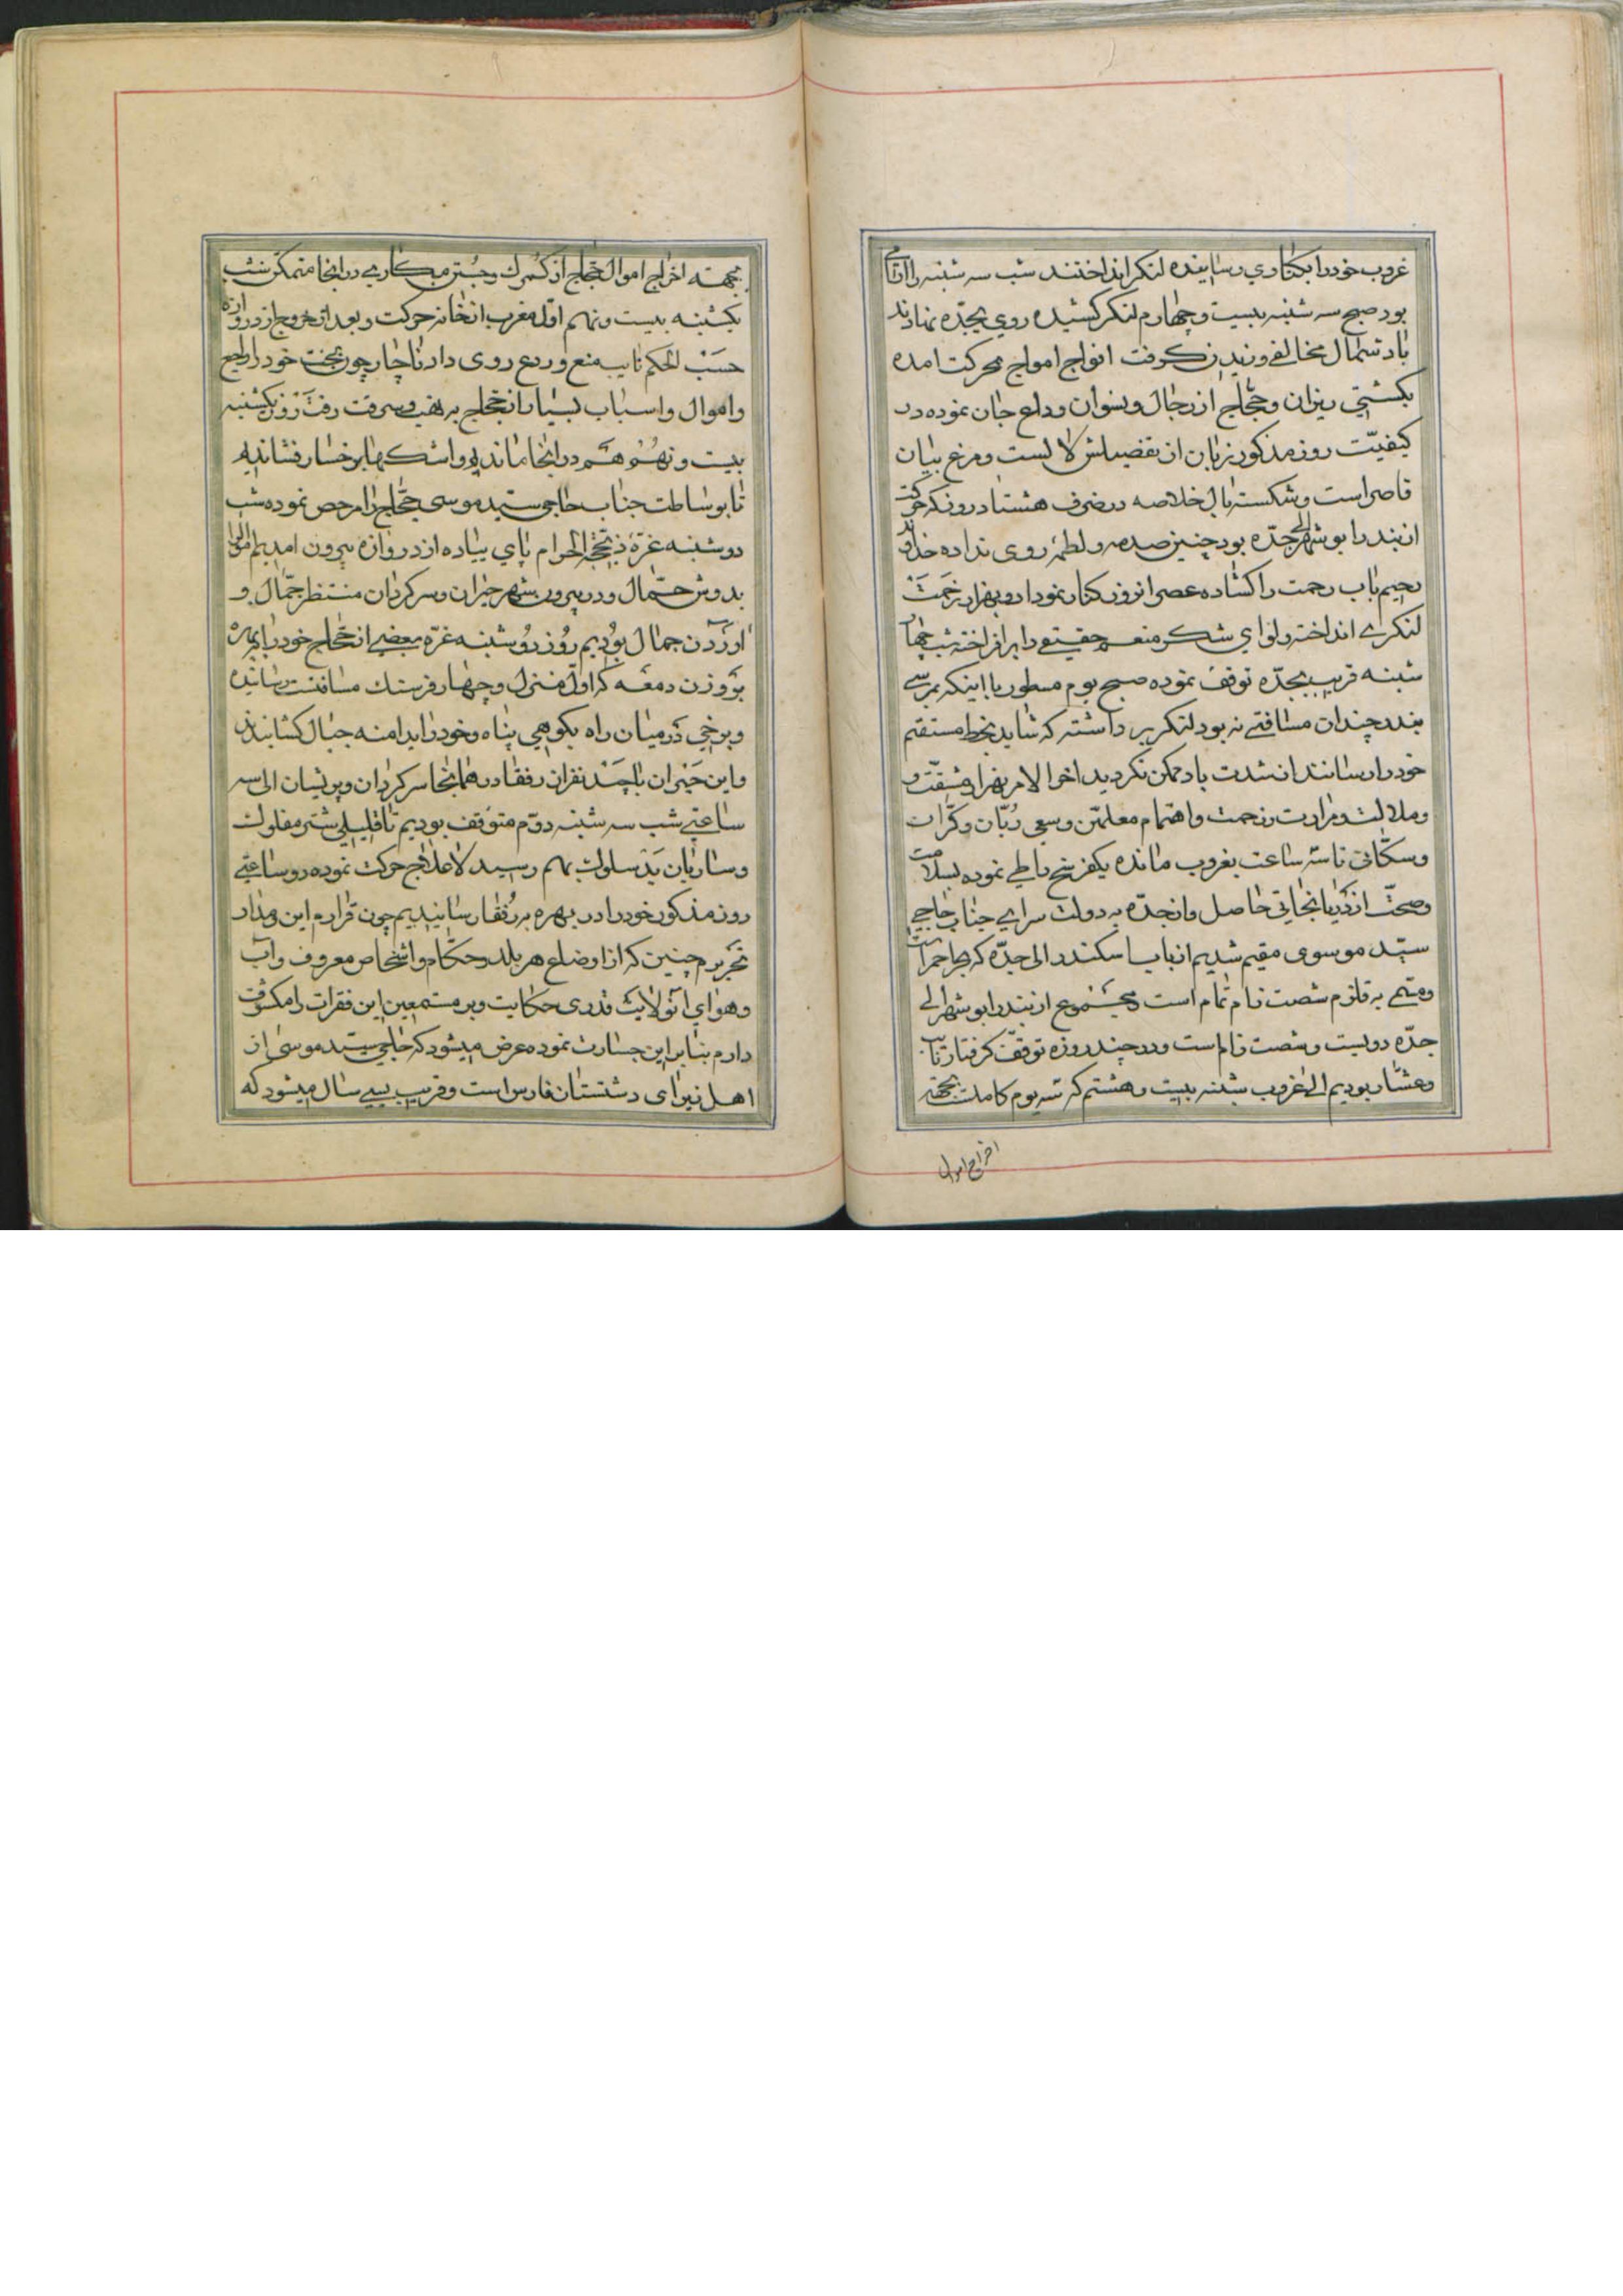 غروب خود را بکناری رسانیده لنکر انداختند شب سه شنبه را اقامی
بود صبح سه شنبه بیست و چهارم لنکر کشیده روی بجدّه نهادند
باد شمال مخالف وزیدن کرفت افواج امواج بحرکت امده
بکشتی ریزان و حجّاج از رجال و نسوان وداع جان نموده در
کیفیّت روز مذکور زبان از تفصیلش لالست و مرغ بیان
قاصر است و شکسته بال خلاصه در ظرف هشتاد روز که حرکت
از بندر ابوشهر الی جدّه بود چنین صدمه و لطمهٔ روی نداده خداوند
رحیم باب رحمت را کشاده عصر انروز کنار نمودار و بهزار زحمت
لنکری انداخته و لوای شکر منعم حقیقی را برافراخته شب چهار
شنبه قریب بجدّه توقف نموده صبح یوم مسطور با اینکه بمرسی
بندر چندان مسافتی نه بود لنکر بر داشته که شاید بخط مستقیم
خود را رسانند از شدت باد ممکن نکردید اخر الامر بهزار مشقّت و
و ملالت و مرارت و زحمت و اهتمام معلمیّن و سعی ربّان و کرّات
و سکّانی تا سه ساعت بغروب مانده یکفرسخ را طی نموده بسلامت
و صحّت از دریا نجاتی حاصل و از جدّه به دولت سرای جناب حاجی
سیّد موسوی مقیم شدیم از باب اسکندر الی جدّه که بحر احمر است
و متمی به قلزم شصت زام تمام است مجموع از بندر ابوشهر الی
جدّه دویست و شصت زام است و در چند روزه توقفّ کرفتار تاب
و عشّار بودیم الی غروب شنبه بیست و هشتم که سه یوم کاملست بجهته
اخراج اموال
بجهته اخراج اموال حجّاج از کمرک و جستن مکاری در انجا متمکن شب
یکشنبه بیست و نهم اوّل مغرب از خانه حرکت و بعد از خروج از دروازه
حسب الحکم نایب منع و ردع روی داد ناچار چون بخت خود را راجع
و اموال و اسباب بسیار از حجاج به نهب و سرقت رفت روز یکشنبه
بیست و نهم هم در انجا ماندیم و اشکها بر رخسار فشاندیم
تا بوساطت جناب حاجی سید موسی حجّاج را مرخص نموده شب
دوشنبه غرّهٔ ذیحجة الحرام پای پیاده از دروازه بیرون امدیم اموال
بدوش حمّال و در بیرون شهر حیران و سرکردان منتظر جمّال و
اوردن جمال بودیم روز دوشنبه غرّه بعضی از حجّاج خود را بهره
بر وزن دمغه که اوّل منزل و چهار فرسنک مسافتست رسانیده
و برخی در میان راه بکوهی پناه و خود را بدامنه جبال کشانیدند
و این حیران با چند نفر از رفقا در همانجا سرکردان و پریشان الی سه
ساعتی شب سه شنبه دوّم متوقف بودیم تا قلیلی شتر مفلوک
و ساربان بد سلوک بهم رسید لاعلاج حرکت نموده دو ساعتی
روز مذکور خود را در بهره برفقا رسانیدیم چون قرارم این و مدار
تحریرم چنین که از اوضاع هر بلد و حکّام و اشخاص معروف و آب
و هوای انولایت قدری حکایت و بر مستمعین این فقرات را مکشوف
دارم بنابراین جسارت نموده عرض میشود که حاجی سیّد موسی از
اهل نیرای دشتستان فارس است و قریب بسی سال میشود که